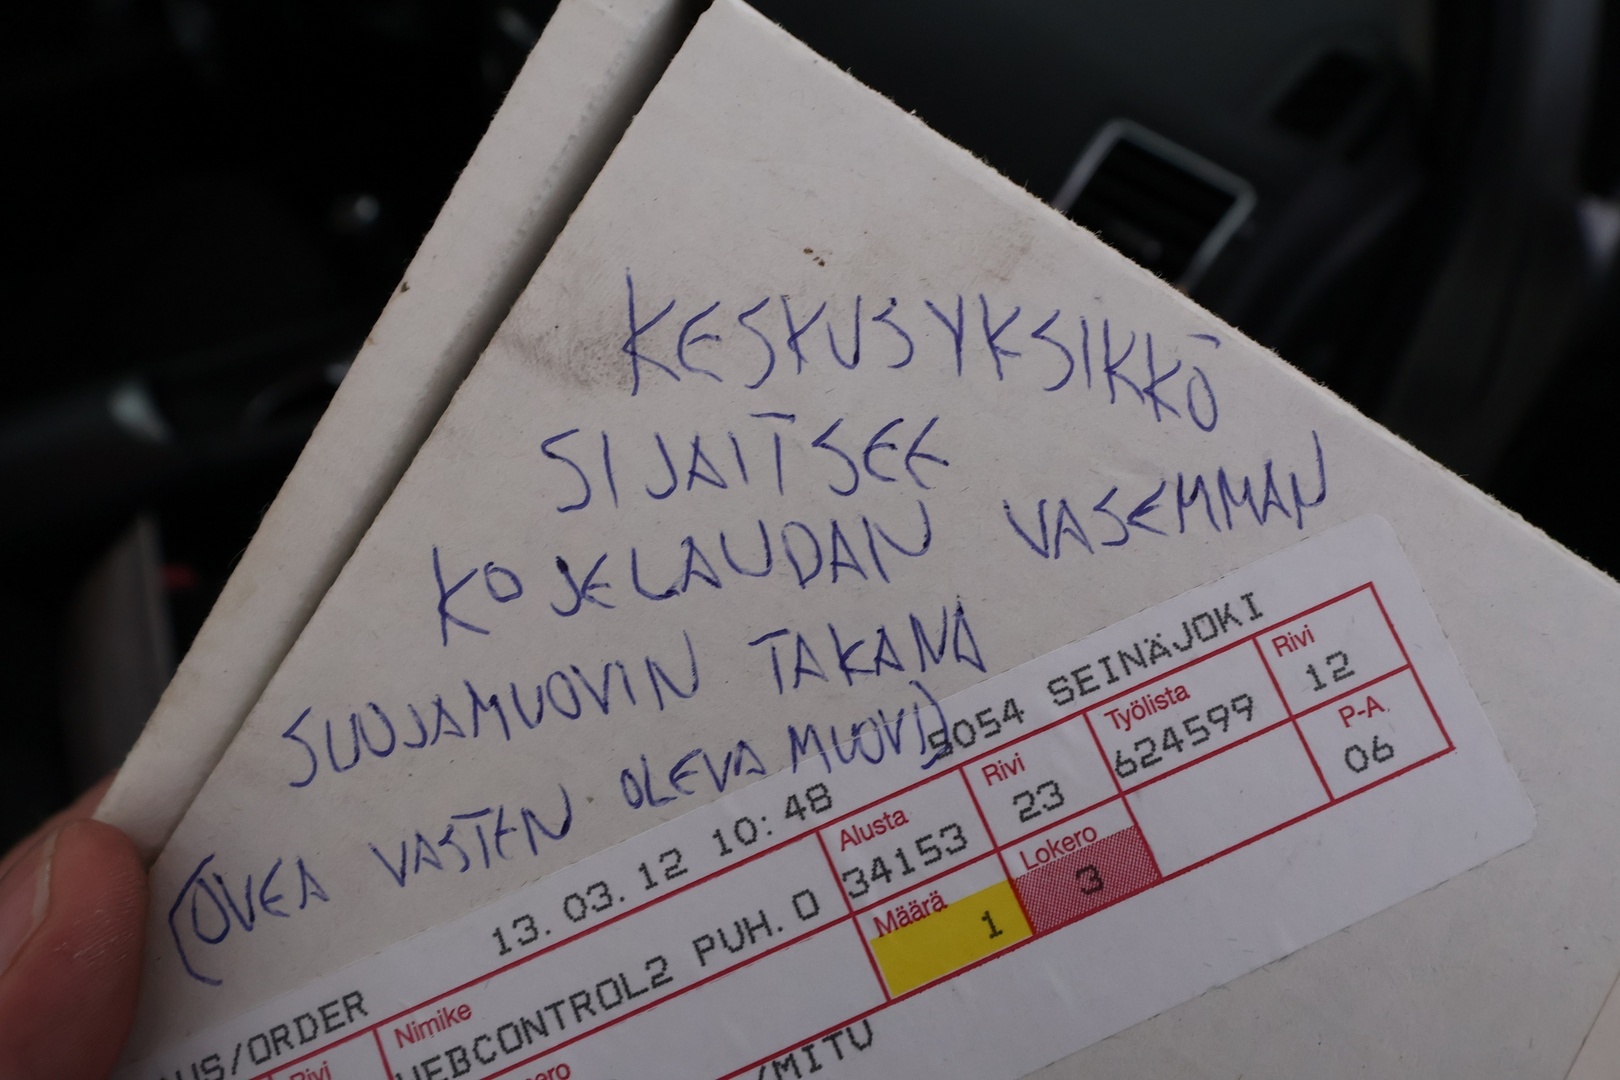 KESKUSYKSIKKÖ
SIJAITSEE
KOJELAUDAN VASEMMAN
SUOJAMUOVIN TAKANA
(OVEA VASTEN OLEVA MUOVI)
13.03.12 10:48 5054 SEINÄJOKI
US/ORDER
Rivi
Nimike
WEBCONTROL2 PUH. O
Alusta
34153
Rivi
23
Työlista
624599
Rivi
12
Määrä
1
Lokero
3
P-A.
06
/MITU